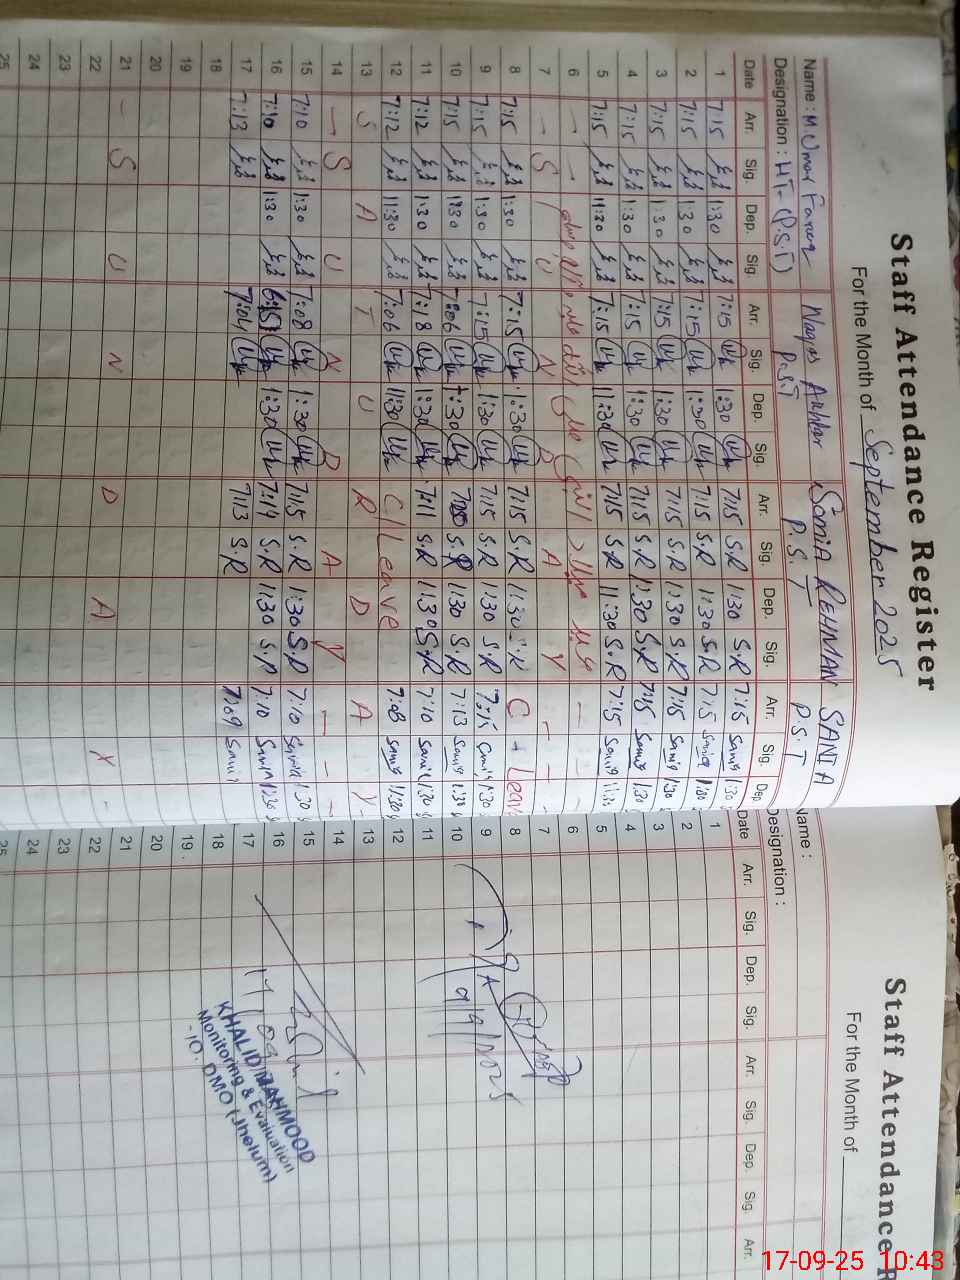 Staff Attendance Register
For the Month of September 2025
Name : M. Umar Farooq Waqas Akhtar Samia REHMAN SANIA
Designation : HT- (P.S.T) P.S.T P.S.T P.S.T
Date Arr. Sig. Dep. Sig. Arr. Sig. Dep. Sig. Arr. Sig. Dep. Sig. Arr. Sig. Dep.
1 7:15 1:30 7:15 1:30 7:15 S.R 1:30 S.R 7:15 Sania 1:30
2 7:15 1:30 7:15 1:30 7:15 S.R 1:30 S.R 7:15 Sania 1:30
3 7:15 1:30 7:15 1:30 7:15 S.R 1:30 S.R 7:15 Sania 1:30
4 7:15 1:30 7:15 1:30 7:15 S.R 1:30 S.R 7:15 Sania 1:30
5 7:15 11:30 7:15 11:30 7:15 S.R 11:30 S.R 7:15 Sania 11:30
6 — —
7 — S U N D A Y — —
8 7:15 1:30 7:15 1:30 7:15 S.R 1:30 S.R C + Leav
9 7:15 1:30 7:15 1:30 7:15 S.R 1:30 S.R 7:15 Sania 1:30
10 7:15 1:30 7:06 1:30 S.R 1:30 S.R 7:13 Sania 1:30
11 7:12 1:30 7:18 1:30 7:11 S.R 1:30 S.R 7:10 Sania 1:30
12 7:12 11:30 7:06 11:30 C/Leave 7:08 Sania 11:30
13 S A T U R D A Y
14 — S U N D A Y — — —
15 7:10 1:30 7:08 1:30 7:15 S.R 1:30 S.R 7:10 Sania 1:30
16 7:10 1:30 6:15 1:30 7:14 S.R 1:30 S.R 7:10 Sania 1:30
17 7:13 7:04 7:13 S.R 7:09 Sania
18
19
20
21 — S U N D A Y -
22
23
24
25
Staff Attendance R
For the Month of
Name :
Designation :
Date Arr. Sig. Dep. Sig. Arr. Sig. Dep. Sig. Arr.
1
2
3
4
5
6
7
8
9
10
11
12
13
14
15
16
17
18
19
20
21
22
23
24
25
9/9/2025
17/09
KHALID MAHMOOD
Monitoring & Evaluation
DMO (Jhelum)
17-09-25 10:43